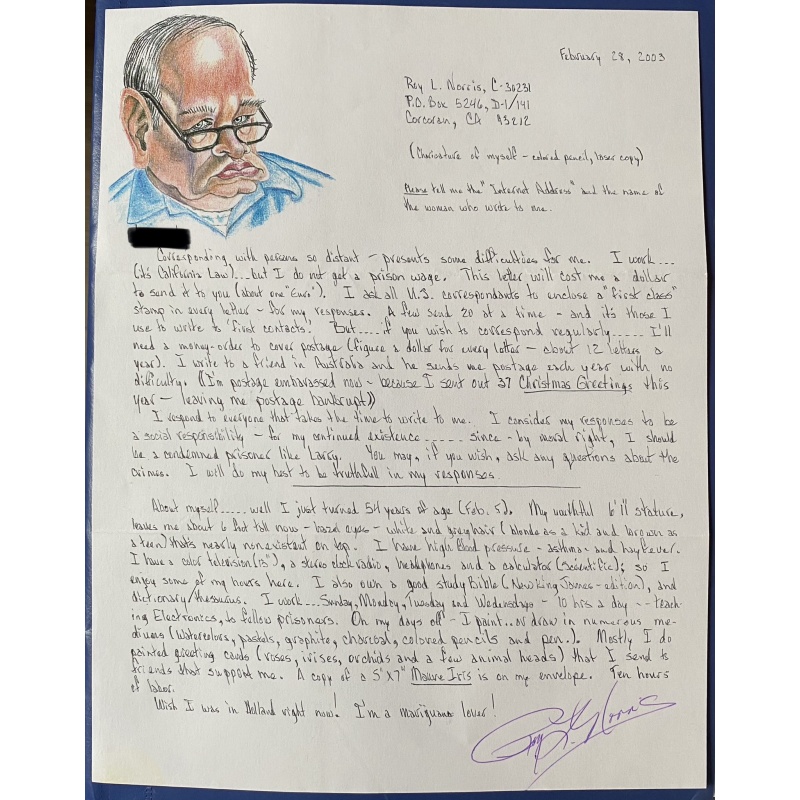 February 28, 2003
Roy L. Norris, C-30231
P.O. Box 5246, D-1/141
Corcoran, CA 93212
(Charicature of myself - colored pencil, laser copy)
Please tell me the "Internet Address" and the name of
the woman who write to me.
Corresponding with persons so distant - presents some difficulties for me. I work....
(it's California Law)...but I do not get a prison wage. This letter will cost me a dollar
to send it to you (about one "Euro"). I ask all U.S. correspondants to unclose a "first class"
stamp in every letter - for my responses. A few send 20 at a time - and it's those I
use to write to 'first contacts'. But.... if you wish to correspond regularly..... I'll
need a money-order to cover postage (figure a dollar for every letter - about 12 letters a
year). I write to a friend in Australia and he sends me postage each year with no
difficulty. ((I'm postage embarassed now - because I sent out 37 Christmas Greetings this
year - leaving me postage bankrupt))
I respond to everyone that takes the time to write to me. I consider my responses to be
a social responsibility - for my continued existence..... since - by moral right, I should
be a condemned prisoner like Larry. You may, if you wish, ask any questions about the
crimes. I will do my best to be truthfull in my responses.
About myself..... well I just turned 54 years of age (Feb. 5). My youthful 6'1" stature,
leaves me about 6 foot tall now - hazel eyes - white and grey hair (blonde as a kid and brown as
a teen) that's nearly nonexistent on top. I have high blood pressure - asthma - and hayfever.
I have a color television (13"), a stereo clock radio, headphones and a calculator (scientific); so I
enjoy some of my hours here. I also own a good study Bible (New King James - edition), and
dictionary/thesaurus. I work... Sunday, Monday, Tuesday and Wednesdays - 10 hrs a day -- teach-
ing Electronics, to fellow prisoners. On my days off - I paint.. or draw in numerous me-
diums (watercolors, pastels, graphite, charcoal, colored pencils and pen.). Mostly I do
painted greeting cards (roses, irises, orchids and a few animal heads) that I send to
friends that support me. A copy of a 5"X7" Mauve Iris is on my envelope. Ten hours
of labor.
Wish I was in Holland right now! I'm a mariguana lover!
Roy L. Norris